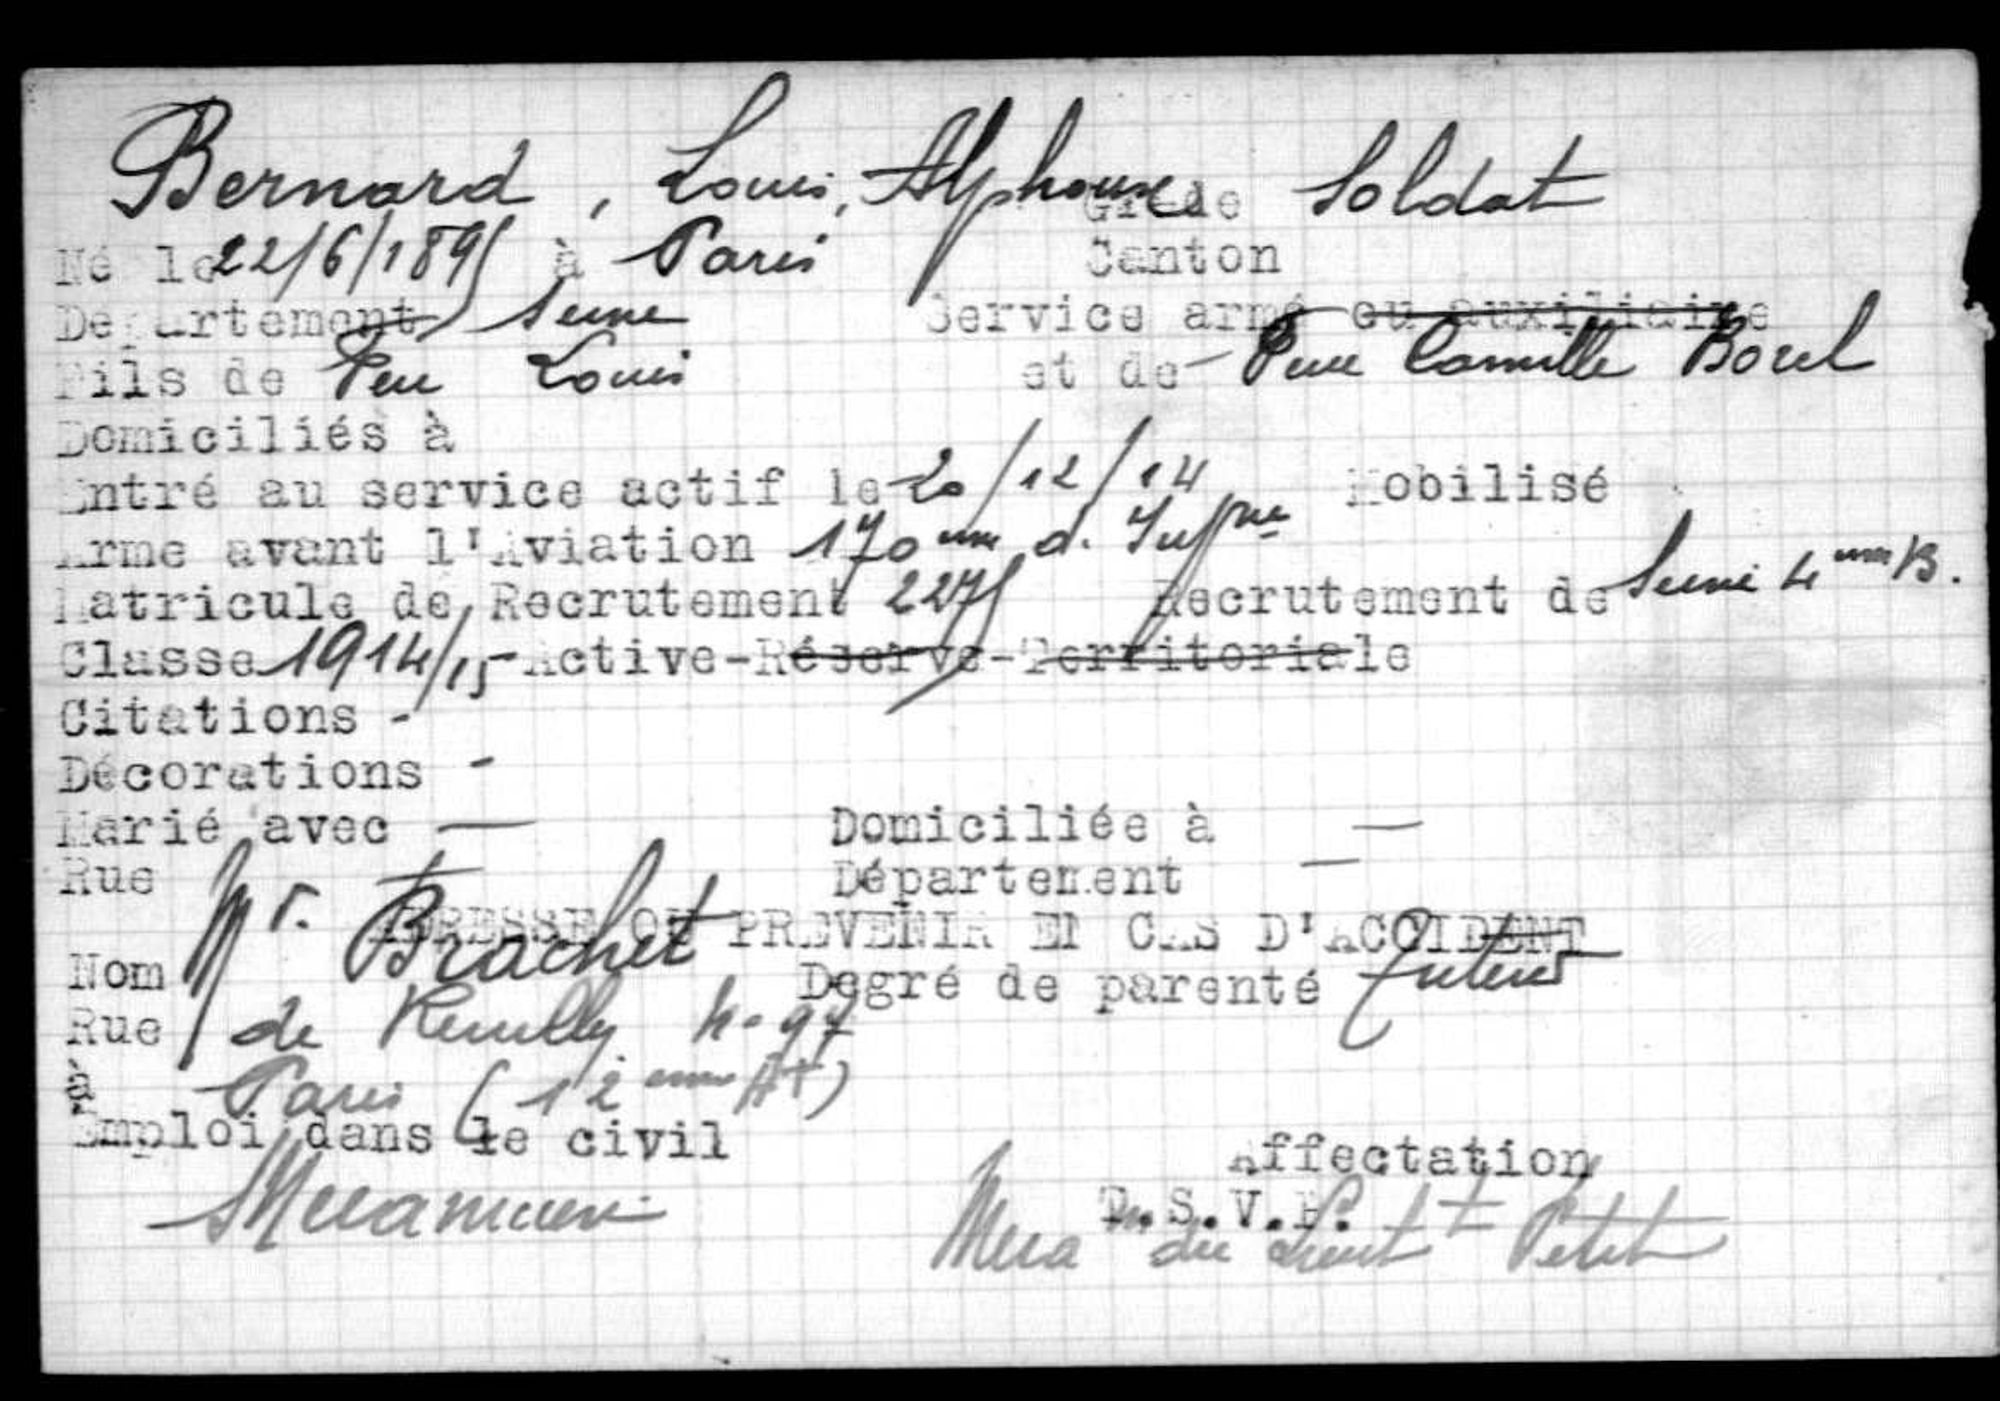 Bernard, Louis, Alphonse Grade Soldat
Né le 22/6/1895 à Paris Canton
Département Seine Service armé ou auxiliaire
Fils de Feu Louis et de Feue Camille Borel
Domiciliés à
Entré au service actif le 20/12/14 Mobilisé
Arme avant l'Aviation 170 eme d'Inf rie
Matricule de Recrutement 2275 Recrutement de Seine 4 eme B.
Classe 1914/15 - Active-Réserve-Territoriale
Citations -
Décorations -
Marié avec — Domiciliée à —
Rue — Département —
ADRESSE OU PREVENIR EN CAS D'ACCIDENT
Nom Mr. Brachet Degré de parenté Tuteur
Rue de Reuilly No 97
à Paris (12 eme Art)
Emploi dans le civil Affectation
Mécanicien T.S.V.P.
Méca du Lieut t Petit